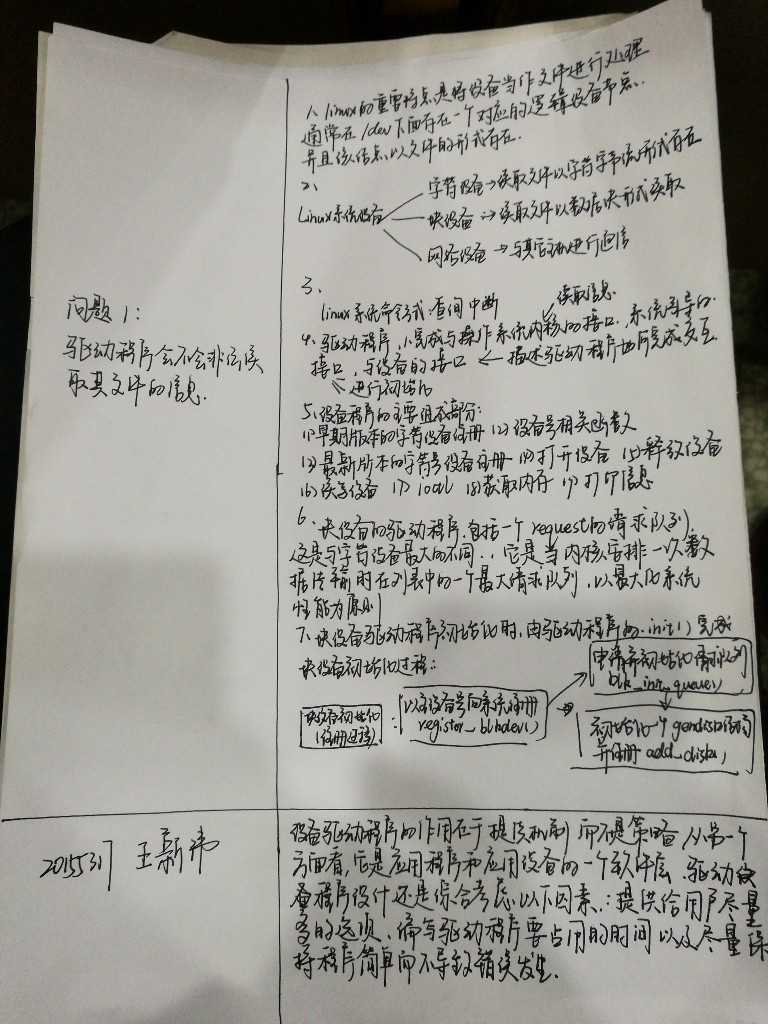 1、linux的重要特点是将设备当作文件进行处理
通常在/dev下面存在一个对应的逻辑设备节点.
并且该结点以文件的形式存在.
2、
字符设备→读取文件以字符字节流形式存在
Linux系统设备
块设备→读取文件以数据块形式读取
网络设备→与其它主机进行通信
问题1:
驱动程序会不会非法读
取其文件的信息.
3、
linux系统命令方式:查询 中断
读取信息
4、驱动程序,小完成与操作系统内核的接口.系统引导的
接口,与设备的接口 ← 描述驱动程序如何完成交互.
进行初始化
5、设备程序的主要组成部分:
(1)早期版本的字符设备注册 (2)设备号相关函数
(3)最新版本的字符号设备注册 (4)打开设备 (5)释放设备
(6)读写设备 (7)ioctl (8)获取内存 (9)打印信息
6、块设备的驱动程序.包括一个request的请求队列.
这是与字符设备最大的不同.,它是当内核安排一次数
据传输时在列表中的一个最大请求队列,以最大化系统
性能为原则
7、块设备驱动程序初始化时,由驱动程序的.init()完成
块设备初始化过程:
申请并初始化请求队列
blk_init_queue()
块设备初始化
(注册过程)
:
以主设备号向系统注册
register_blkdev()
初始化一个gendisk结构
并注册add_disk()
20155317 王新玮
设备驱动程序的作用在于提供机制而不是策略 从另一个
方面看,它是应用程序和应用设备的一个软件层.驱动设
备程序设计还是综合考虑以下因素:提供给用户尽量
多的选项、编写驱动程序要占用的时间以及尽量保
持程序简单而不导致错误发生.